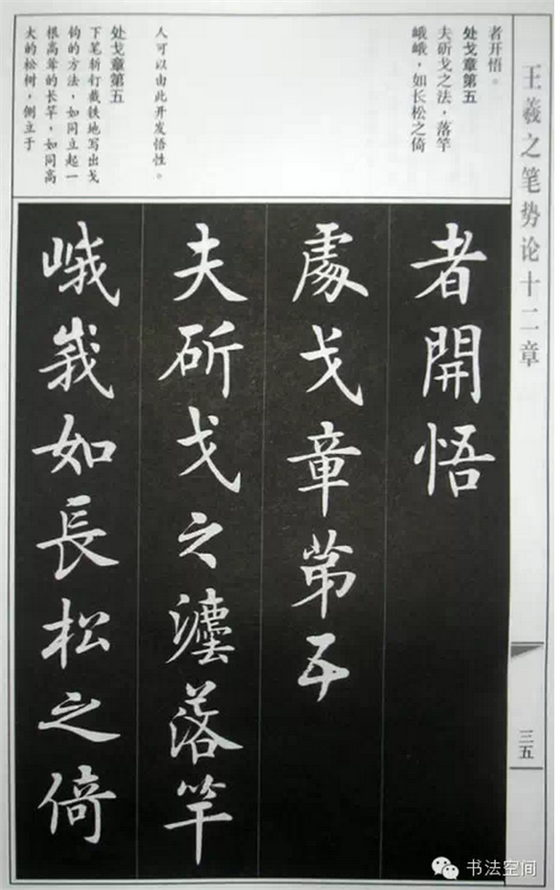 王羲之笔势论十二章
三五
者开悟。
处戈章第五
夫斫戈之法，落竿
峨峨，如长松之倚
人可以由此开发悟性。
处戈章第五
下笔斩钉截铁地写出戈
钩的方法，如同立起一
根高耸的长竿，如同高
大的松树，侧立于
者開悟
處戈章第五
夫斫戈之灋落竿
峨峩如長松之倚
书法空间